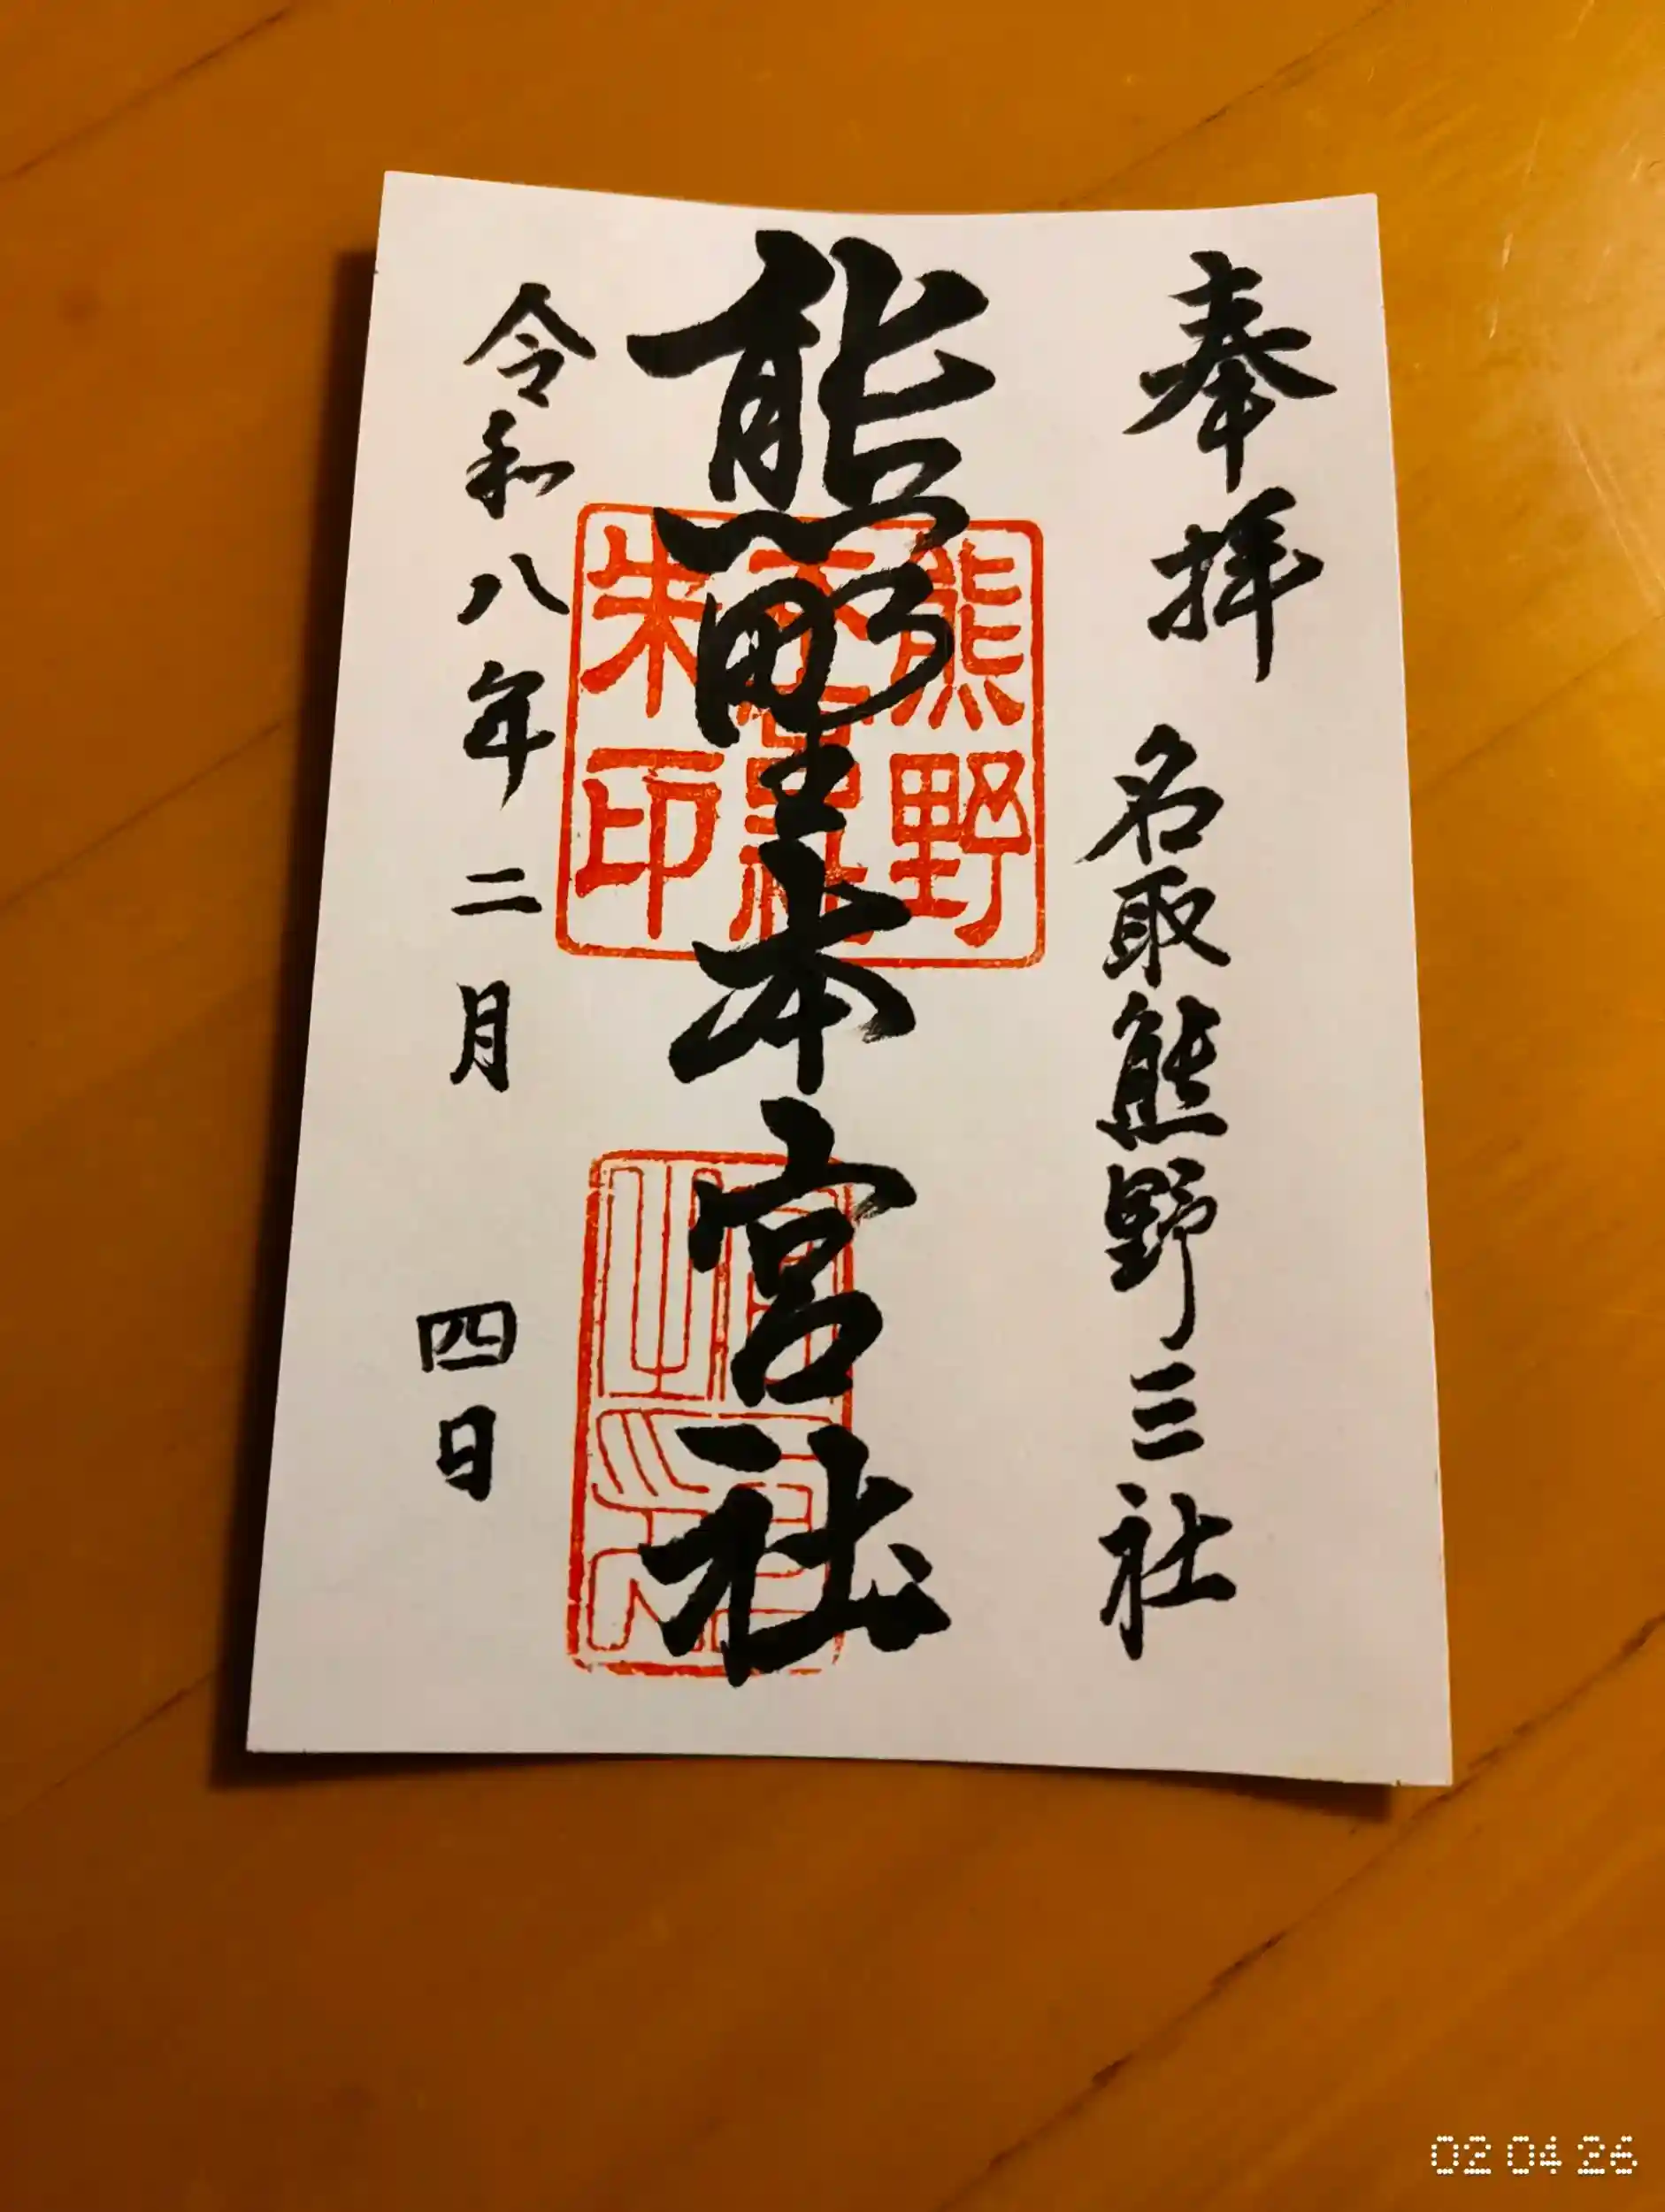 奉拝 名取熊野三社
熊野本宮社
令和八年二月四日
熊野
朱印
02 04 26